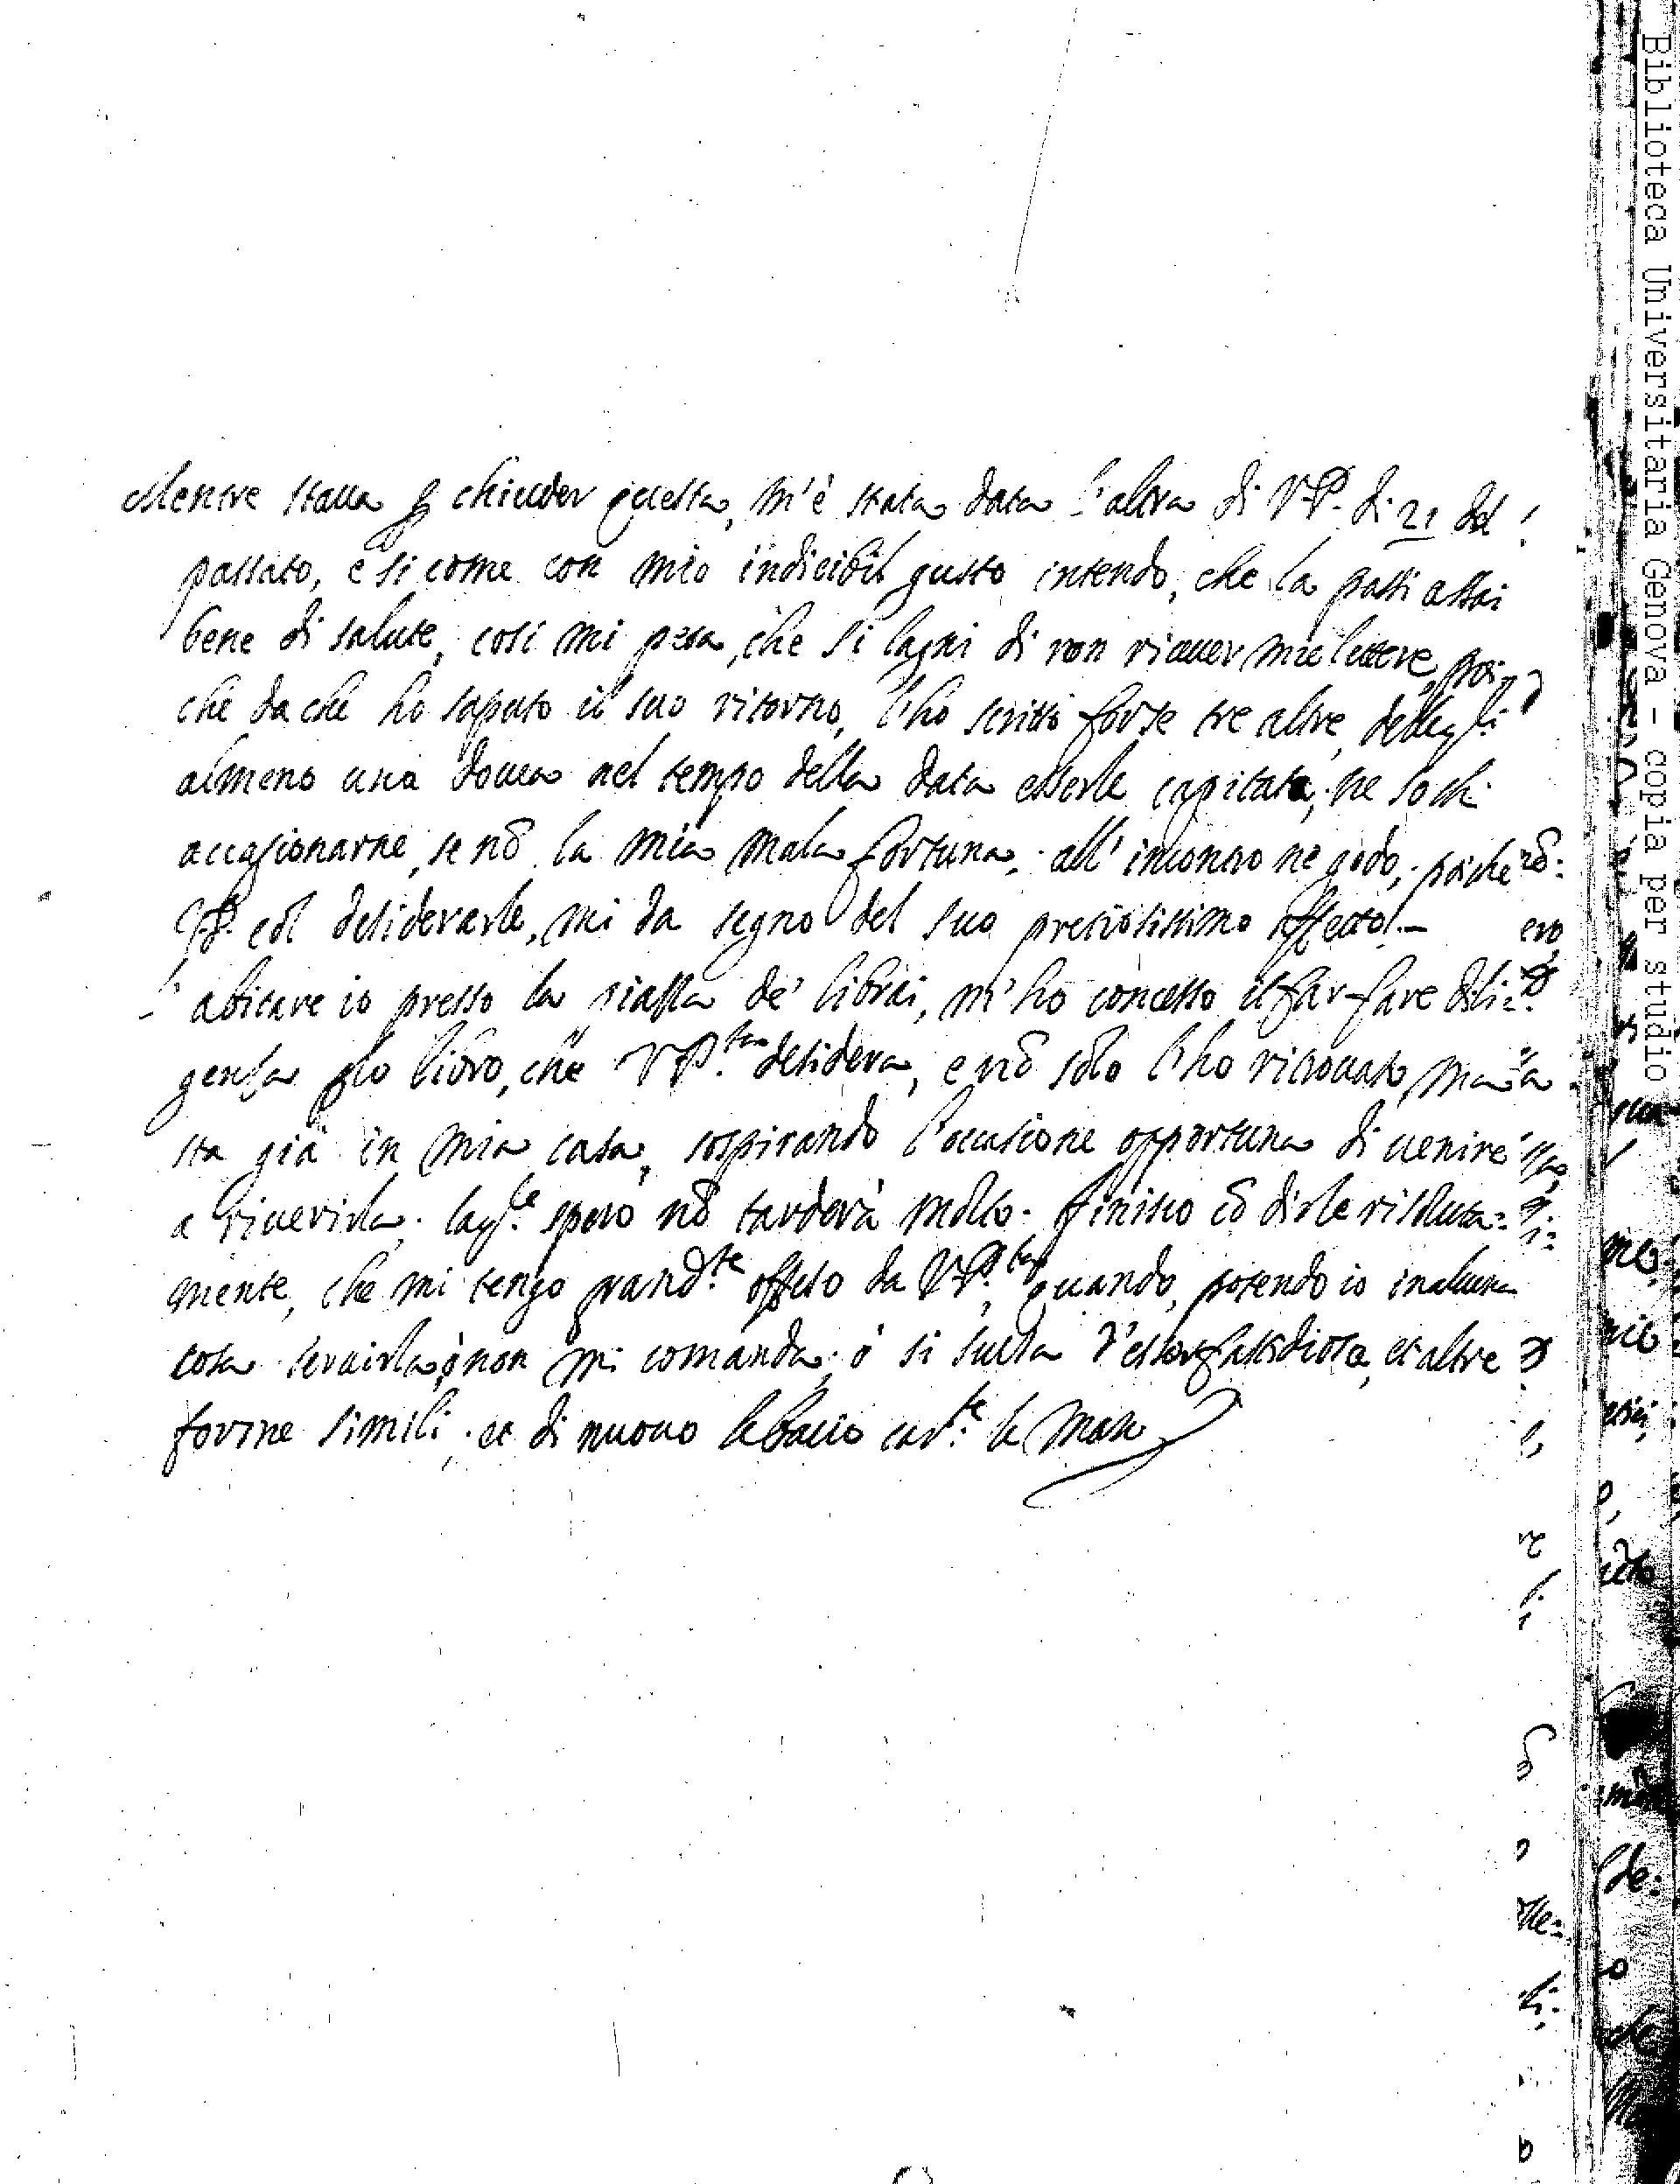 Mentre staua p chiuder questa, m'è stata data l'altra di V.P. di 21 del
passato, e si come con mio indicibil gusto intendo, che la passi assai
bene di salute, cosí mi pesa, che si lagni di non riceuer mie lettere, poi-
che da che ho saputo il suo ritorno, l'ho scritto forse tre altre, delle qli
almeno una doueua nel tempo della data esserle capitata, ne so chi
accagionarne, se nõ la mia mala fortuna; all' incontro ne godo, poiche
V.P. col desiderarle, mi da segno del suo pretiosissimo affetto.-
l' abitare io presso la piazza de' librai, m' ha concesso il far fare dili-
genza plo libro, che V.P.ta desidera, e nõ solo l'ho ritrouato, ma
sta già in mia casa, sospirando l'occasione opportuna di uenire
a riuerirla. la q.le spero nõ tarderà molto. finisco cõ dirle risoluta-
mente, che mi tengo grand.te offeso da V.P.ta, quando, potendo io in alcuna
cosa seruirla, ò non mi comanda, ó si scusa d'esser fastidiosa, et altre
forme simili, et di nuouo le bacio car.te le mani
Biblioteca Universitaria Genova - copia per studio